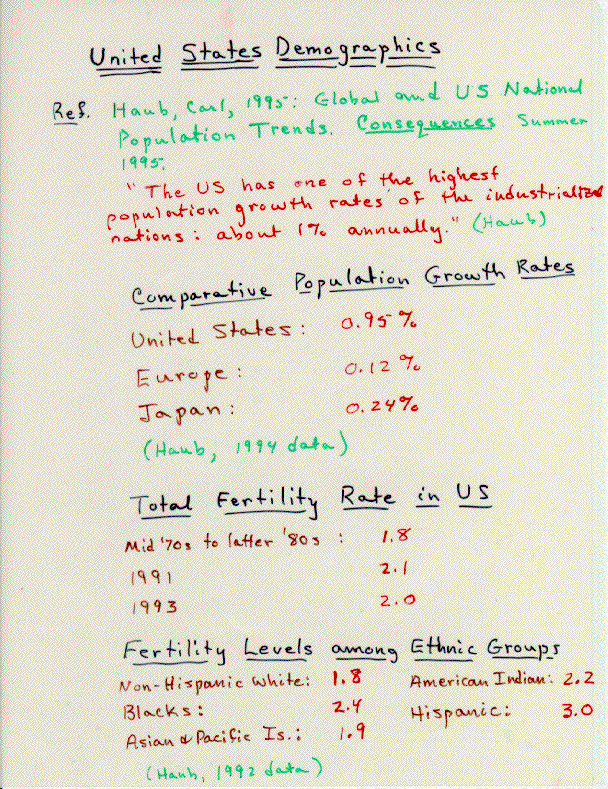 United States Demographics
Ref. Haub, Carl, 1995: Global and US National
Population Trends. Consequences Summer
1995.
"The US has one of the highest
population growth rates of the industrialized
nations: about 1% annually." (Haub)
Comparative Population Growth Rates
United States: 0.95%
Europe: 0.12%
Japan: 0.24%
(Haub, 1994 data)
Total Fertility Rate in US
Mid '70s to latter '80s: 1.8
1991 2.1
1993 2.0
Fertility Levels among Ethnic Groups
Non-Hispanic White: 1.8 American Indian: 2.2
Blacks: 2.4 Hispanic: 3.0
Asian & Pacific Is.: 1.9
(Haub, 1992 data)